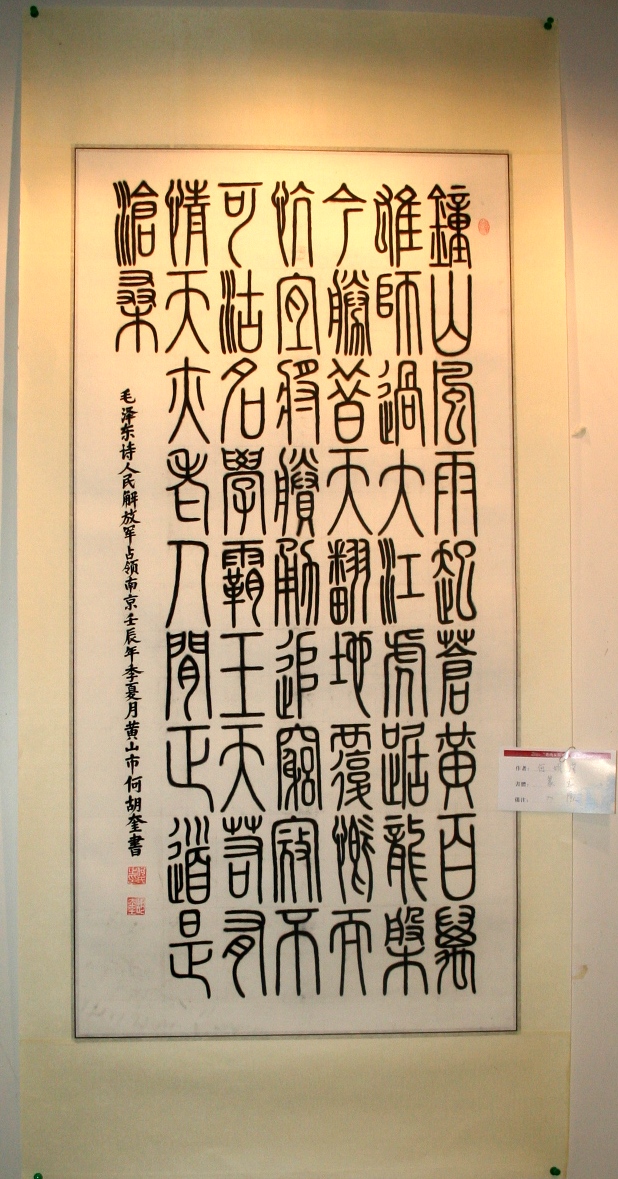 鐘山風雨起蒼黃百萬
雄師過大江虎踞龍槃
今勝昔天翻地覆慨而
忼宜將賸勇追窮寇不
可沽名學霸王天若有
情天亦老人間正道是
滄桑
毛泽东诗人民解放军占领南京壬辰年季夏月黄山市何胡奎書
作者：